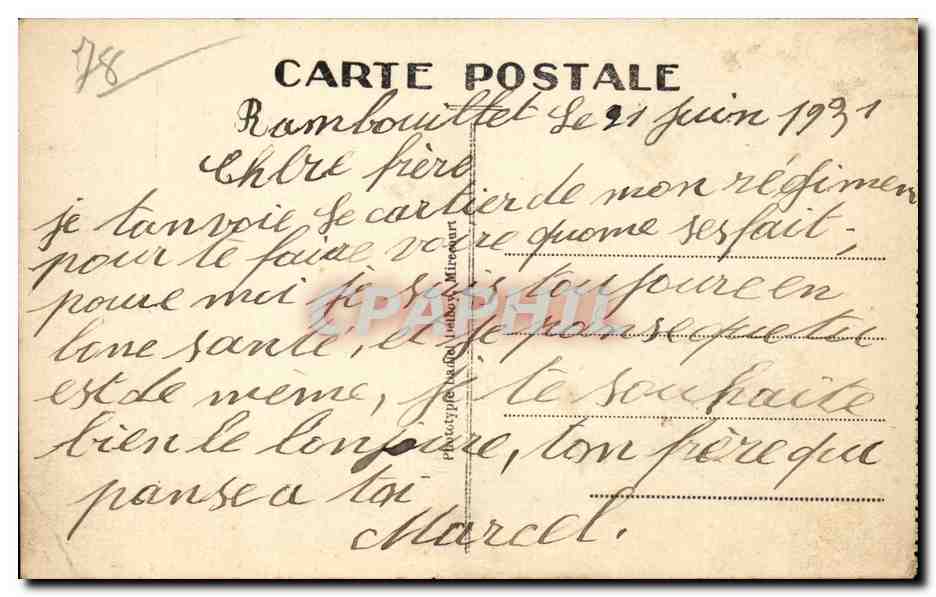 78
CARTE POSTALE
Rambouillet le 21 juin 1931
Chere frère
je tanvoie le cartier de mon régimen
pour te faire voire quome sesfait,
poure moi je suis toujoure en
bone sante, et je panse que tu
est de mème, je te souhaite
bien le bonjoure, ton frère qui
panse a toi
Marcel.
Phototypie Daniel Delboy, Mirecourt
CPAPHIL